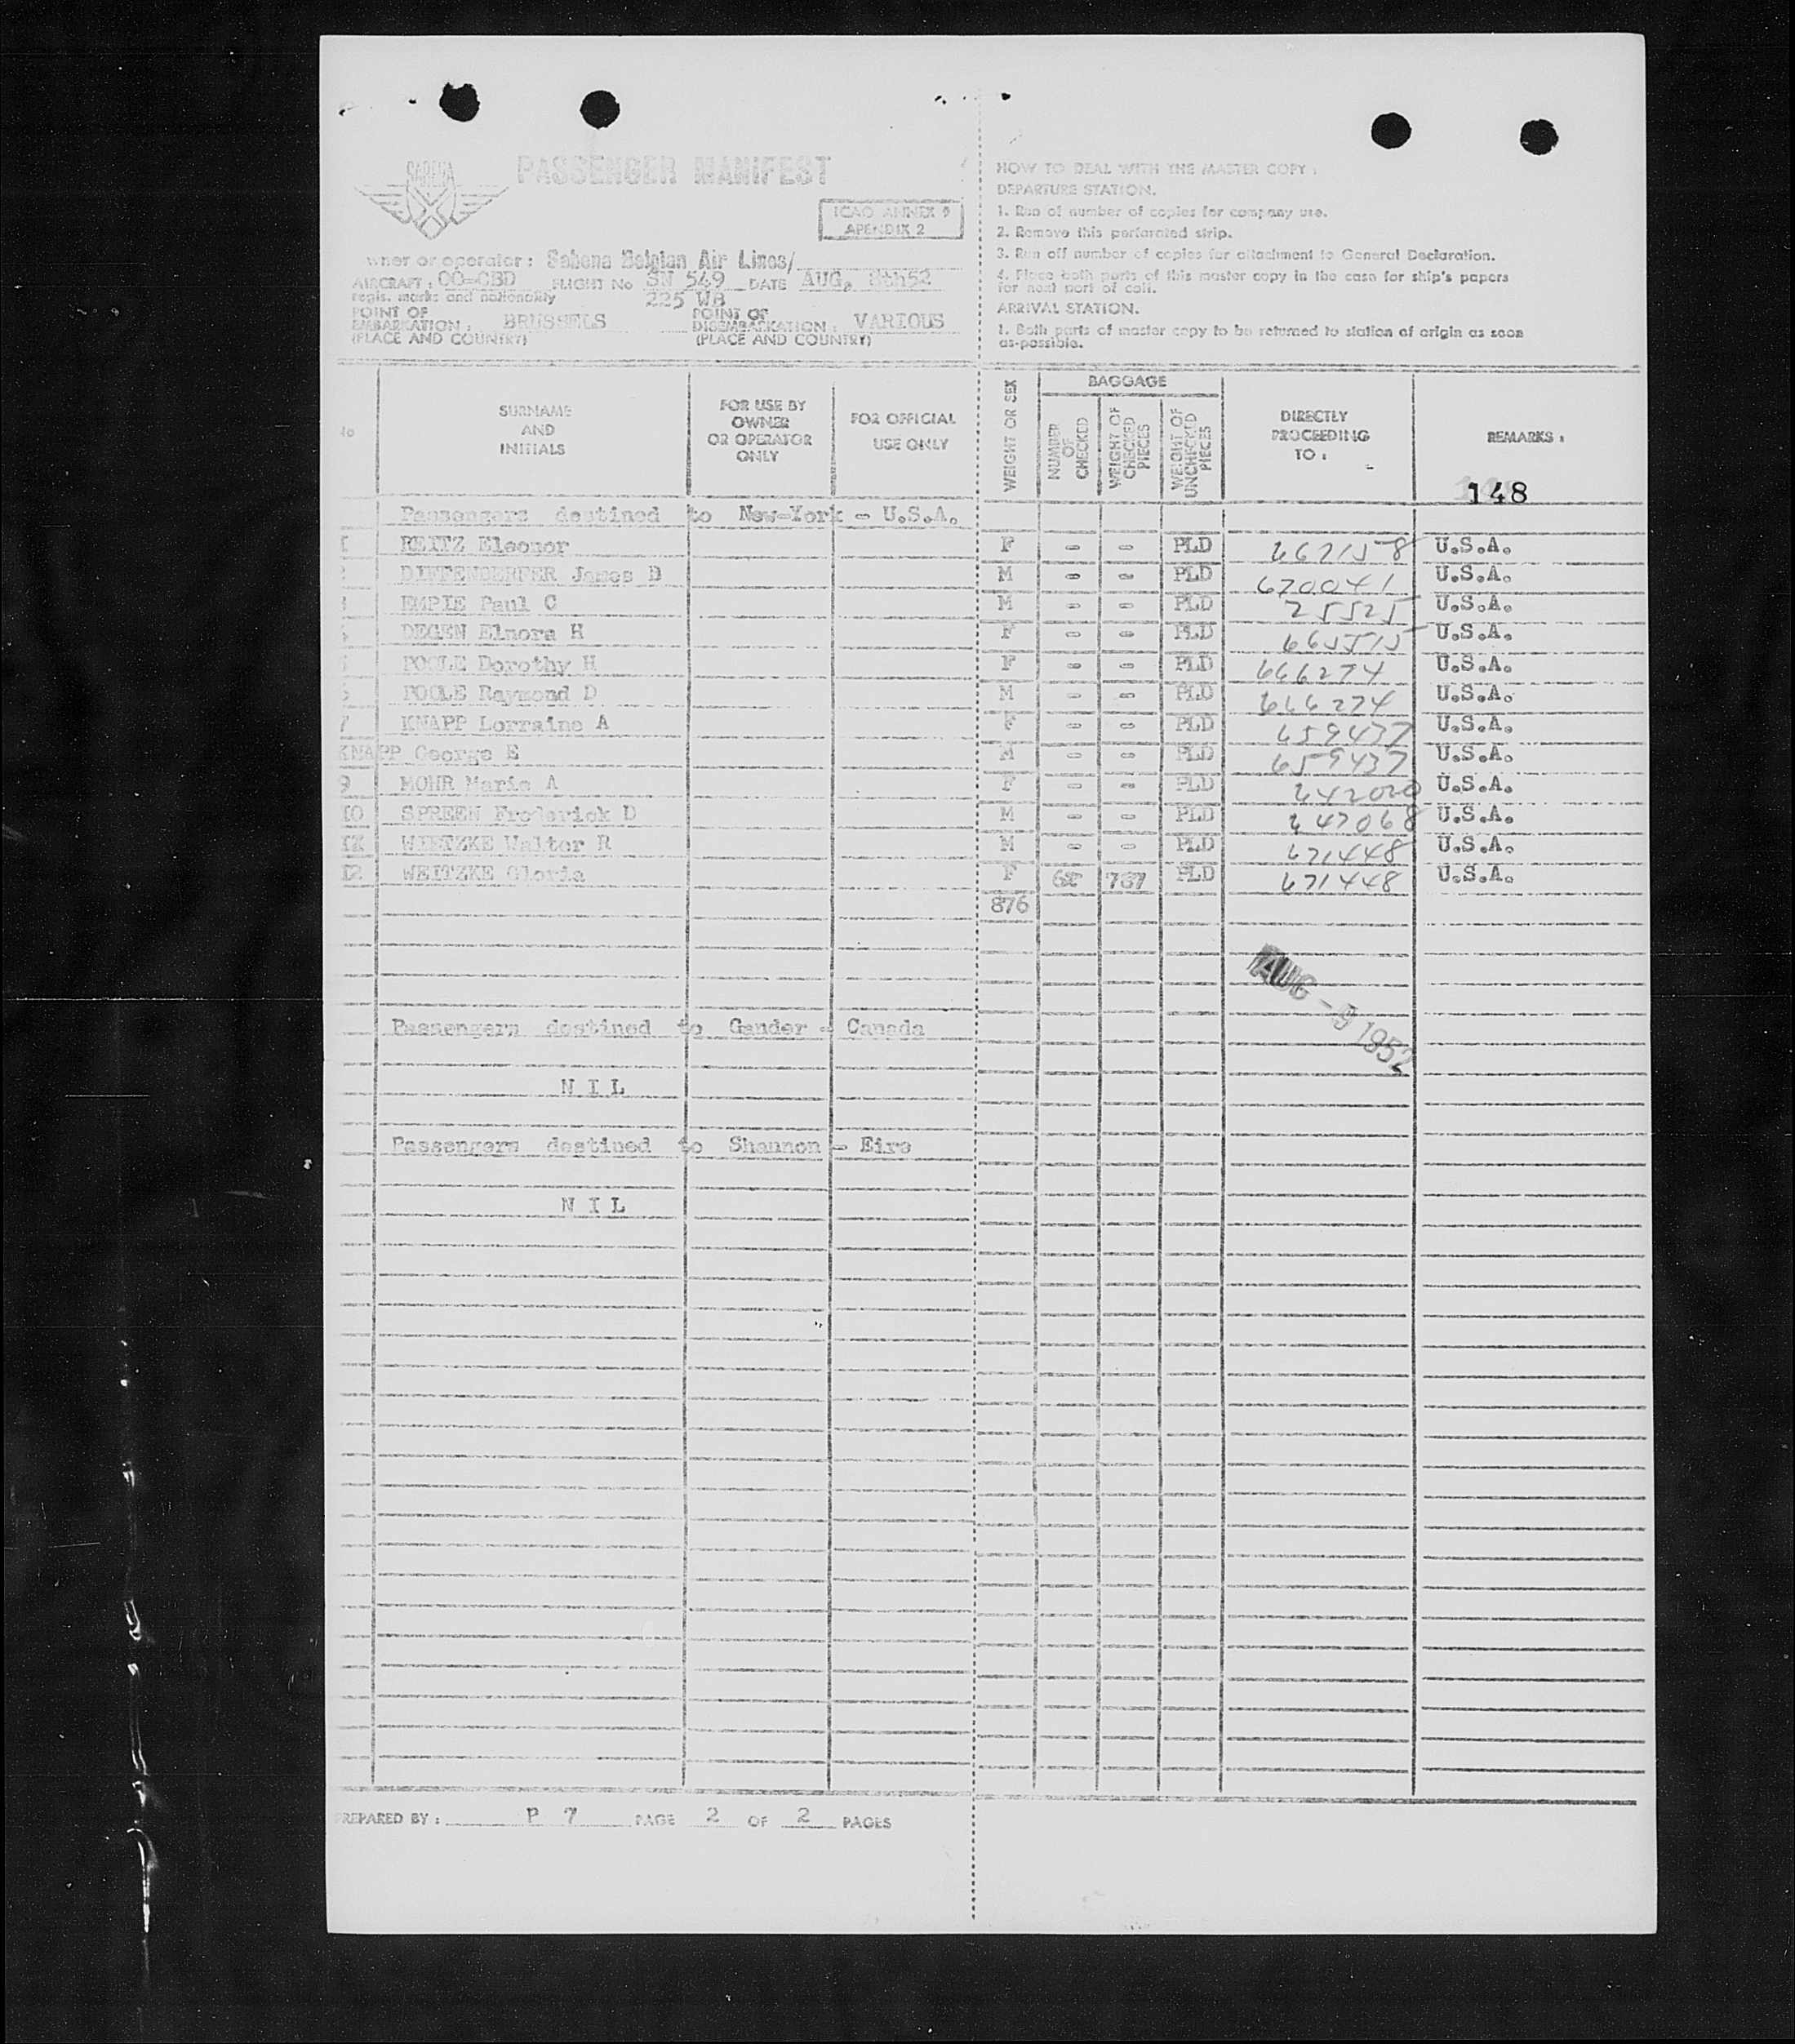 SABENA
PASSENGER MANIFEST
ICAO ANNEX 9
APENDIX 2
wner or operator : Sabena Belgian Air Lines/
AIRCRAFT : OO=CBD FLIGHT No SN 549 DATE AUG, 8th52
regis. marks and nationality 225 WB
POINT OF EMBARKATION : BRUSSELS POINT OF DISEMBARKATION : VARIOUS
(PLACE AND COUNTRY) (PLACE AND COUNTRY)
HOW TO DEAL WITH THE MASTER COPY :
DEPARTURE STATION.
1. Run of number of copies for company use.
2. Remove this perforated strip.
3. Run off number of copies for attachment to General Declaration.
4. Place both parts of this master copy in the case for ship's papers
for next port of call.
ARRIVAL STATION.
1. Both parts of master copy to be returned to station of origin as soon
as-possible.
No SURNAME AND INITIALS FOR USE BY OWNER OR OPERATOR ONLY FOR OFFICIAL USE ONLY WEIGHT OR SEX BAGGAGE NUMBER OF CHECKED WEIGHT OF CHECKED PIECES WEIGHT OF UNCHECKED PIECES DIRECTLY PROCEEDING TO : REMARKS :
148
Passengers destined to New=York = U.S.A.
I REITZ Eleonor F - - PLD 667158 U.S.A.
DIFFENDERFER James D M - - PLD 670041 U.S.A.
EMPIE Paul C M - - PLD 25525 U.S.A.
DEGEN Elnora H F - - PLD 665515 U.S.A.
POOLE Dorothy H F - - PLD 666274 U.S.A.
POOLE Raymond D M - - PLD 666274 U.S.A.
7 KNAPP Lorraine A F - - PLD 659437 U.S.A.
KNAPP George E M - - PLD 659437 U.S.A.
9 MOHR Marie A F - - PLD 642020 U.S.A.
IO SPREEN Frederick D M - - PLD 647068 U.S.A.
WIETZKE Walter R M - - PLD 671448 U.S.A.
I2 WEITZKE Gloria F 767 PLD 671448 U.S.A.
876
AUG - 9 1952
Passengers destined to Gander = Canada
N I L
Passengers destined to Shannon = Eire
N I L
PREPARED BY : P 7 PAGE 2 OF 2 PAGES